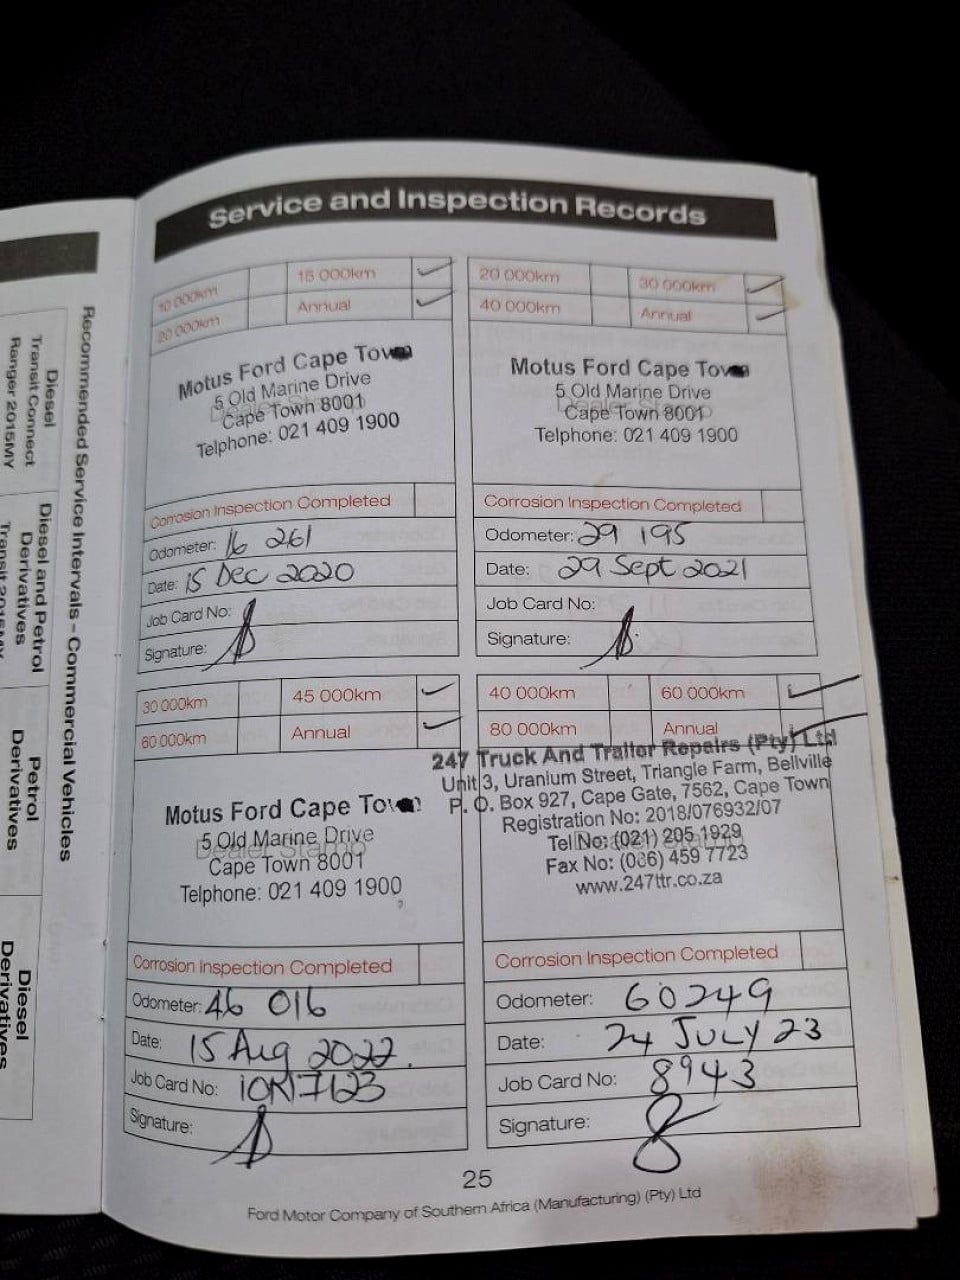 Service and Inspection Records
10 000km 15 000km ✓
20 000km Annual ✓
Motus Ford Cape Town
5 Old Marine Drive
Cape Town 8001
Telphone: 021 409 1900
Dealer Stamp
Corrosion Inspection Completed
Odometer: 16 261
Date: 15 Dec 2020
Job Card No:
Signature:
20 000km 30 000km ✓
40 000km Annual ✓
Motus Ford Cape Town
5 Old Marine Drive
Cape Town 8001
Telphone: 021 409 1900
Dealer Stamp
Corrosion Inspection Completed
Odometer: 29 195
Date: 29 Sept 2021
Job Card No:
Signature:
30 000km 45 000km ✓
60 000km Annual ✓
Motus Ford Cape Town
5 Old Marine Drive
Cape Town 8001
Telphone: 021 409 1900
Dealer Stamp
Corrosion Inspection Completed
Odometer: 46 016
Date: 15 Aug 2022.
Job Card No:
Signature:
40 000km 60 000km ✓
80 000km Annual ✓
247 Truck And Trailor Repairs (Pty) Ltd
Unit 3, Uranium Street, Triangle Farm, Bellville
P. O. Box 927, Cape Gate, 7562, Cape Town
Registration No: 2018/076932/07
Tel No: (021) 205 1929
Fax No: (086) 459 7723
www.247ttr.co.za
Corrosion Inspection Completed
Odometer: 60249
Date: 24 JULY 23
Job Card No: 8943
Signature:
25
Ford Motor Company of Southern Africa (Manufacturing) (Pty) Ltd
Recommended Service Intervals - Commercial Vehicles
Diesel
Transit Connect
Ranger 2015MY
Diesel and Petrol
Derivatives
Petrol
Derivatives
Diesel
Derivatives